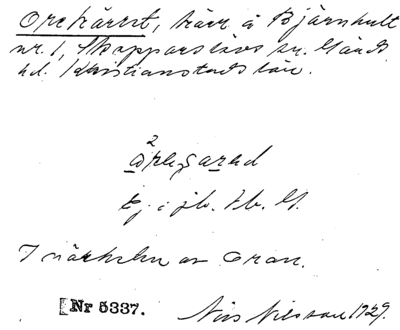 Orekärret, kärr å Björnhult
nr. 1, Skepparslövs sn. Gärds
hd. Kristianstads län.
Ej i jb. Hb. G.
I närheten av Oran.
Nr 5337.
Nils Nilsson 1929.